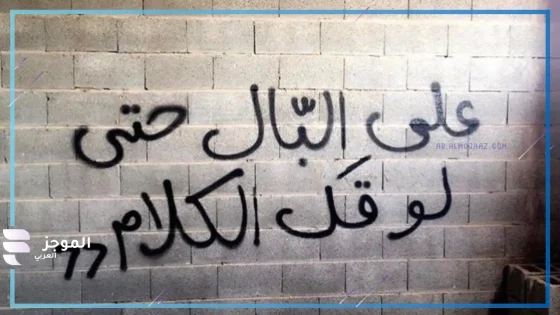 على البّال حتى
لو قَل الكلام ,,
AR.ALMOJAAZ.COM
الموجز
العربي